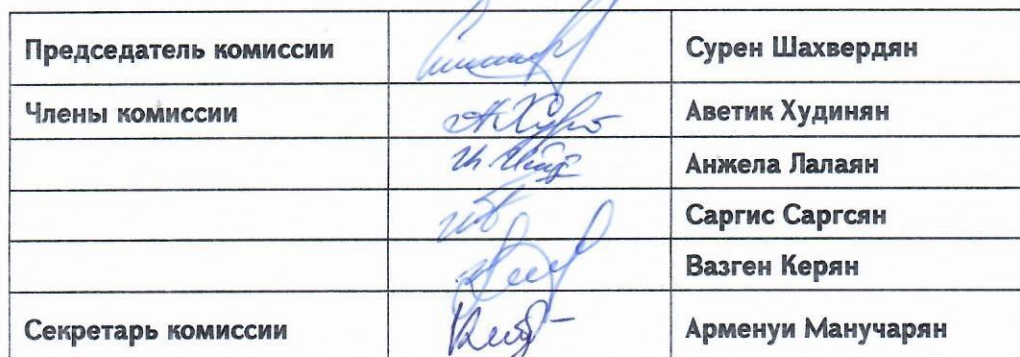 Председатель комиссии Сурен Шахвердян
Члены комиссии Аветик Худинян
Анжела Лалаян
Саргис Саргсян
Вазген Керян
Секретарь комиссии Арменуи Манучарян